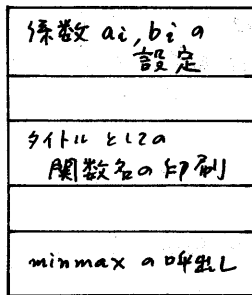 係数 ai, bi の
設定
タイトル としての
関数名の印刷
minmax の呼出し